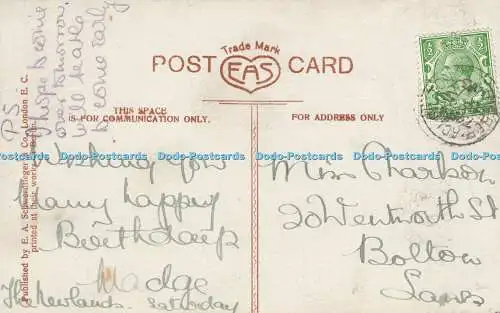 Trade Mark
POST CARD
EAS
THIS SPACE
IS FOR COMMUNICATION ONLY.
FOR ADDRESS ONLY
P.S
I hope to come
over tomorrow.
will Leatha
to come early
Wishing you
many happy
Birthdays
Madge
The Newlands. Saturday
Miss Charlson
20 Wentworth St
Bolton
Lancs
Published by E. A. Schwerdtfeger & Co., London E. C.
printed at their works in Berlin.
Dodo-Postcards Dodo-Postcards Dodo-Postcards Dodo-Postcards Dodo-Postcards Dodo-Postcards